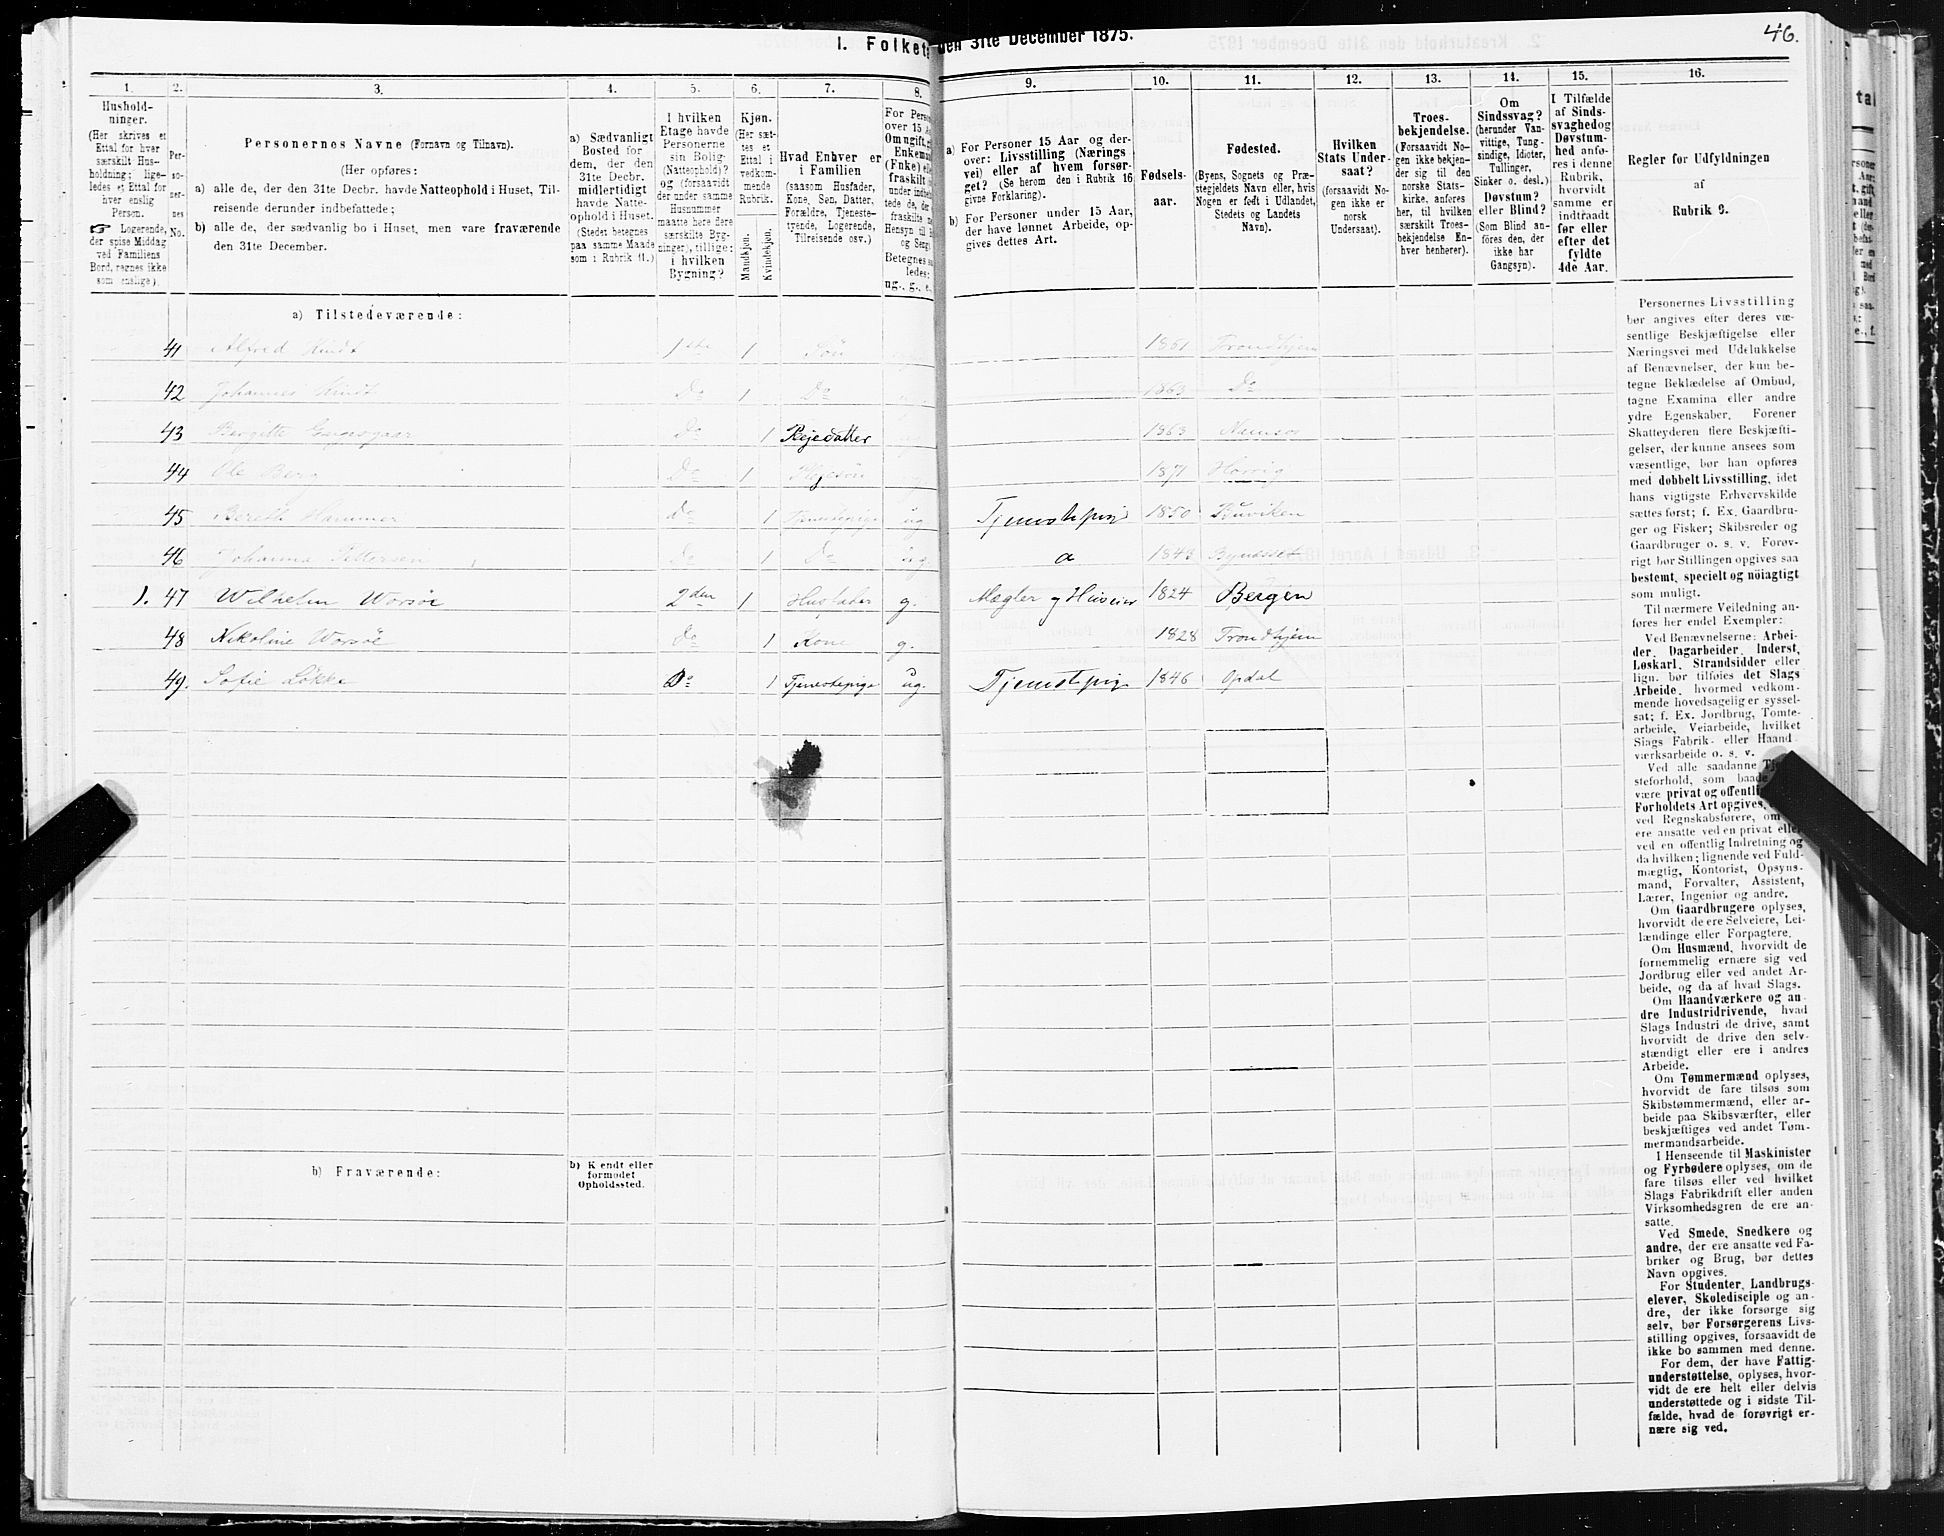 46.
I. Folket
den 31te December 1875.
1. 2. 3. 4. 5. 6. 7. 8. 9. 10. 11. 12. 13. 14. 15. 16.
Hushold-
ninger.
(Her skrives et
Ettal for hver
særskilt Hus-
holdning; lige-
ledes et Ettal for
hver enslig
Person.
☞ Logerende,
der spise Middag
ved Familiens
Bord, regnes ikke
som enslige.)
Per-
so-
ner-
nes
No.
Personernes Navne (Fornavn og Tilnavn).
(Her opføres:
a) alle de, der den 31te Decbr. havde Natteophold i Huset, Til-
reisende derunder indbefattede;
b) alle de, der sædvanlig bo i Huset, men vare fraværende
den 31te December.
a) Sædvanligt
Bosted for
dem, der den
31te Decbr.
midlertidigt
havde Natte-
ophold i Huset.
(Stedet betegnes
paa samme Maade
som i Rubrik 11.)
I hvilken
Etage havde
Personerne
sin Bolig
(Natteophold)?
og (forsaavidt
der under samme
Husnummer
maatte høre flere
særskilte Byg-
ninger), tillige:
i hvilken
Bygning?
Kjøn.
(Her sæt-
tes et
Ettal i
vedkom-
mende
Rubrik.
Mandkjøn.
Kvindekjøn.
Hvad Enhver er
i Familien
(saasom Husfader,
Kone, Søn, Datter,
Forældre, Tjeneste-
tyende, Logerende,
Tilreisende osv.)
For Person
over 15 A
Om ugift, g
Enkeman
(Enke) ell
fraskilt
under indbe
tede de, der
fraskilte
Hensyn til
og Seng
Betegnes sa
ledes:
ug., g., e.,
a) For Personer 15 Aar og der-
over: Livsstilling (Nærings
vei) eller af hvem forsør-
get? (Se herom den i Rubrik 16
givne Forklaring).
b) For Personer under 15 Aar,
der have lønnet Arbeide, op-
gives dettes Art.
Fødsels-
aar.
Fødested.
(Byens, Sognets og Præ-
stegjeldets Navn eller, hvis
Nogen er født i Udlandet,
Stedets og Landets
Navn).
Hvilken
Stats Under-
saat?
(forsaavidt No-
gen ikke er
norsk
Undersaat).
Troes-
bekjendelse.
(Forsaavidt No-
gen ikke bekjen-
der sig til den
norske Stats-
kirke, anføres
her, til hvilken
særskilt Troes-
bekjendelse En-
hver henhører).
Om
Sindssvag?
(herunder Van-
vittige, Tung-
sindige, Idioter,
Tullinger,
Sinker o. desl.)
Døvstum?
eller Blind?
(Som Blind an-
føres den, der
ikke har
Gangsyn).
I Tilfælde
af Sinds-
svaghed og
Døvstum-
hed anfø-
res i denne
Rubrik,
hvorvidt
samme er
indtraadt
før eller
efter det
fyldte
4de Aar.
Regler for Udfyldningen
af
Rubrik 9.
a) Tilstedeværende:
41 Alfred Kindt 1ste 1 Søn 1861 Trondhjem
42 Johannes Kindt Do 1 Do 1863 Do
43 Bergitte Do 1 Plejedatter 1863 Namsos
44 Ole Berg Do 1 Plejesøn 1871
45 Bereth Hammer do 1 Tjenestepige ug Tjenestepig 1850 Buviken
46 Johanna Pettersen Do 1 Do ug 1848 Bynesset
1. 47 Wilhelm Worsöe 2den 1 Husfader g. Mægler og Huseier 1824 Bergen
48 Nikoline Worsöe do 1 Kone g. 1828 Trondhjem
49. Sofie Lökke Do 1 Tjenestepige ug. Tjenestepig 1846 Opdal
b) Fraværende:
b) Kjendt eller
formodet
Opholdssted.
Personernes Livsstilling
bør angives efter deres væ-
sentlige Beskjæftigelse eller
Næringsvei med Udelukkelse
af Benævnelser, der kun be-
tegne Beklædelse af Ombud,
tagne Examina eller andre
ydre Egenskaber. Forener
Skatteyderen flere Beskjæfti-
gelser, der kunne ansees som
væsentlige, bør han opføres
med dobbelt Livsstilling, idet
hans vigtigste Erhvervskilde
sættes først; f. Ex. Gaardbru-
ger og Fisker; Skibsreder og
Gaardbruger o. s. v. Forøv-
rigt bør Stillingen opgives saa
bestemt, specielt og nöiagtigt
som muligt.
Til nærmere Veiledning an-
føres her endel Exempler:
Ved Benævnelserne: Arbei-
der, Dagarbeider, Inderst,
Løskarl, Strandsidder eller
lign. bør tilføies det Slags
Arbeide, hvormed vedkom-
mende hovedsagelig er syssel-
sat; f. Ex. Jordbrug, Tomte-
arbeide, Veiarbeide, hvilket
Slags Fabrik- eller Haand-
værksarbeide o. s. v.
Ved alle saadanne Tje
steforhold, som baade
være privat og offentli
Forholdets Art opgives,
ved Regnskabsførere, om
ere ansatte ved en privat eller
ved en offentlig Indretning og
da hvilken; lignende ved Fuld-
mægtig, Kontorist, Opsyns-
mand, Forvalter, Assistent,
Lærer, Ingeniør og andre.
Om Gaardbrugere oplyses,
hvorvidt de ere Selveiere, Lei-
lændinge eller Forpagtere.
Om Husmænd, hvorvidt de
fornemmelig ernære sig ved
Jordbrug eller ved andet Ar-
beide, og da af hvad Slags.
Om Haandværkere og an
dre Industridrivende, hvad
Slags Industri de drive, samt
hvorvidt de drive den selv-
stændigt eller ere i andres
Arbeide.
Om Tømmermænd oplyses,
hvorvidt de fare tilsøs som
Skibstømmermænd, eller ar-
beide paa Skibsværfter, eller
beskjæftiges ved andet Tøm-
mermandsarbeide.
I Henseende til Maskinister
og Fyrbødere oplyses, om de
fare tilsøs eller ved hvilket
Slags Fabrikdrift eller anden
Virksomhedsgren de ere an-
satte.
Ved Smede, Snedkere og
andre, der ere ansatte ved Fa-
briker og Brug, bør dettes
Navn opgives.
For Studenter, Landbrugs-
elever, Skoledisciple og an-
dre, der ikke forsørge sig
selv, bør Forsørgerens Livs-
stilling opgives, forsaavidt de
ikke bo sammen med denne.
For dem, der have Fattig-
understøttelse, oplyses, hvor-
vidt de ere helt eller delvis
understøttede og i sidste Til-
fælde, hvad de forøvrigt er-
nære sig ved.